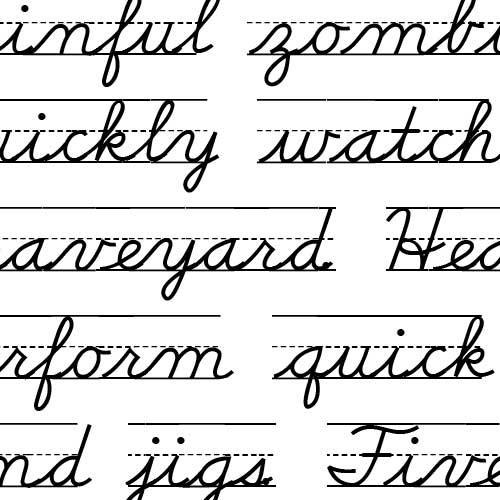 inful zombi
uickly watch
aveyard. Hea
rform quick
nd jigs. Five